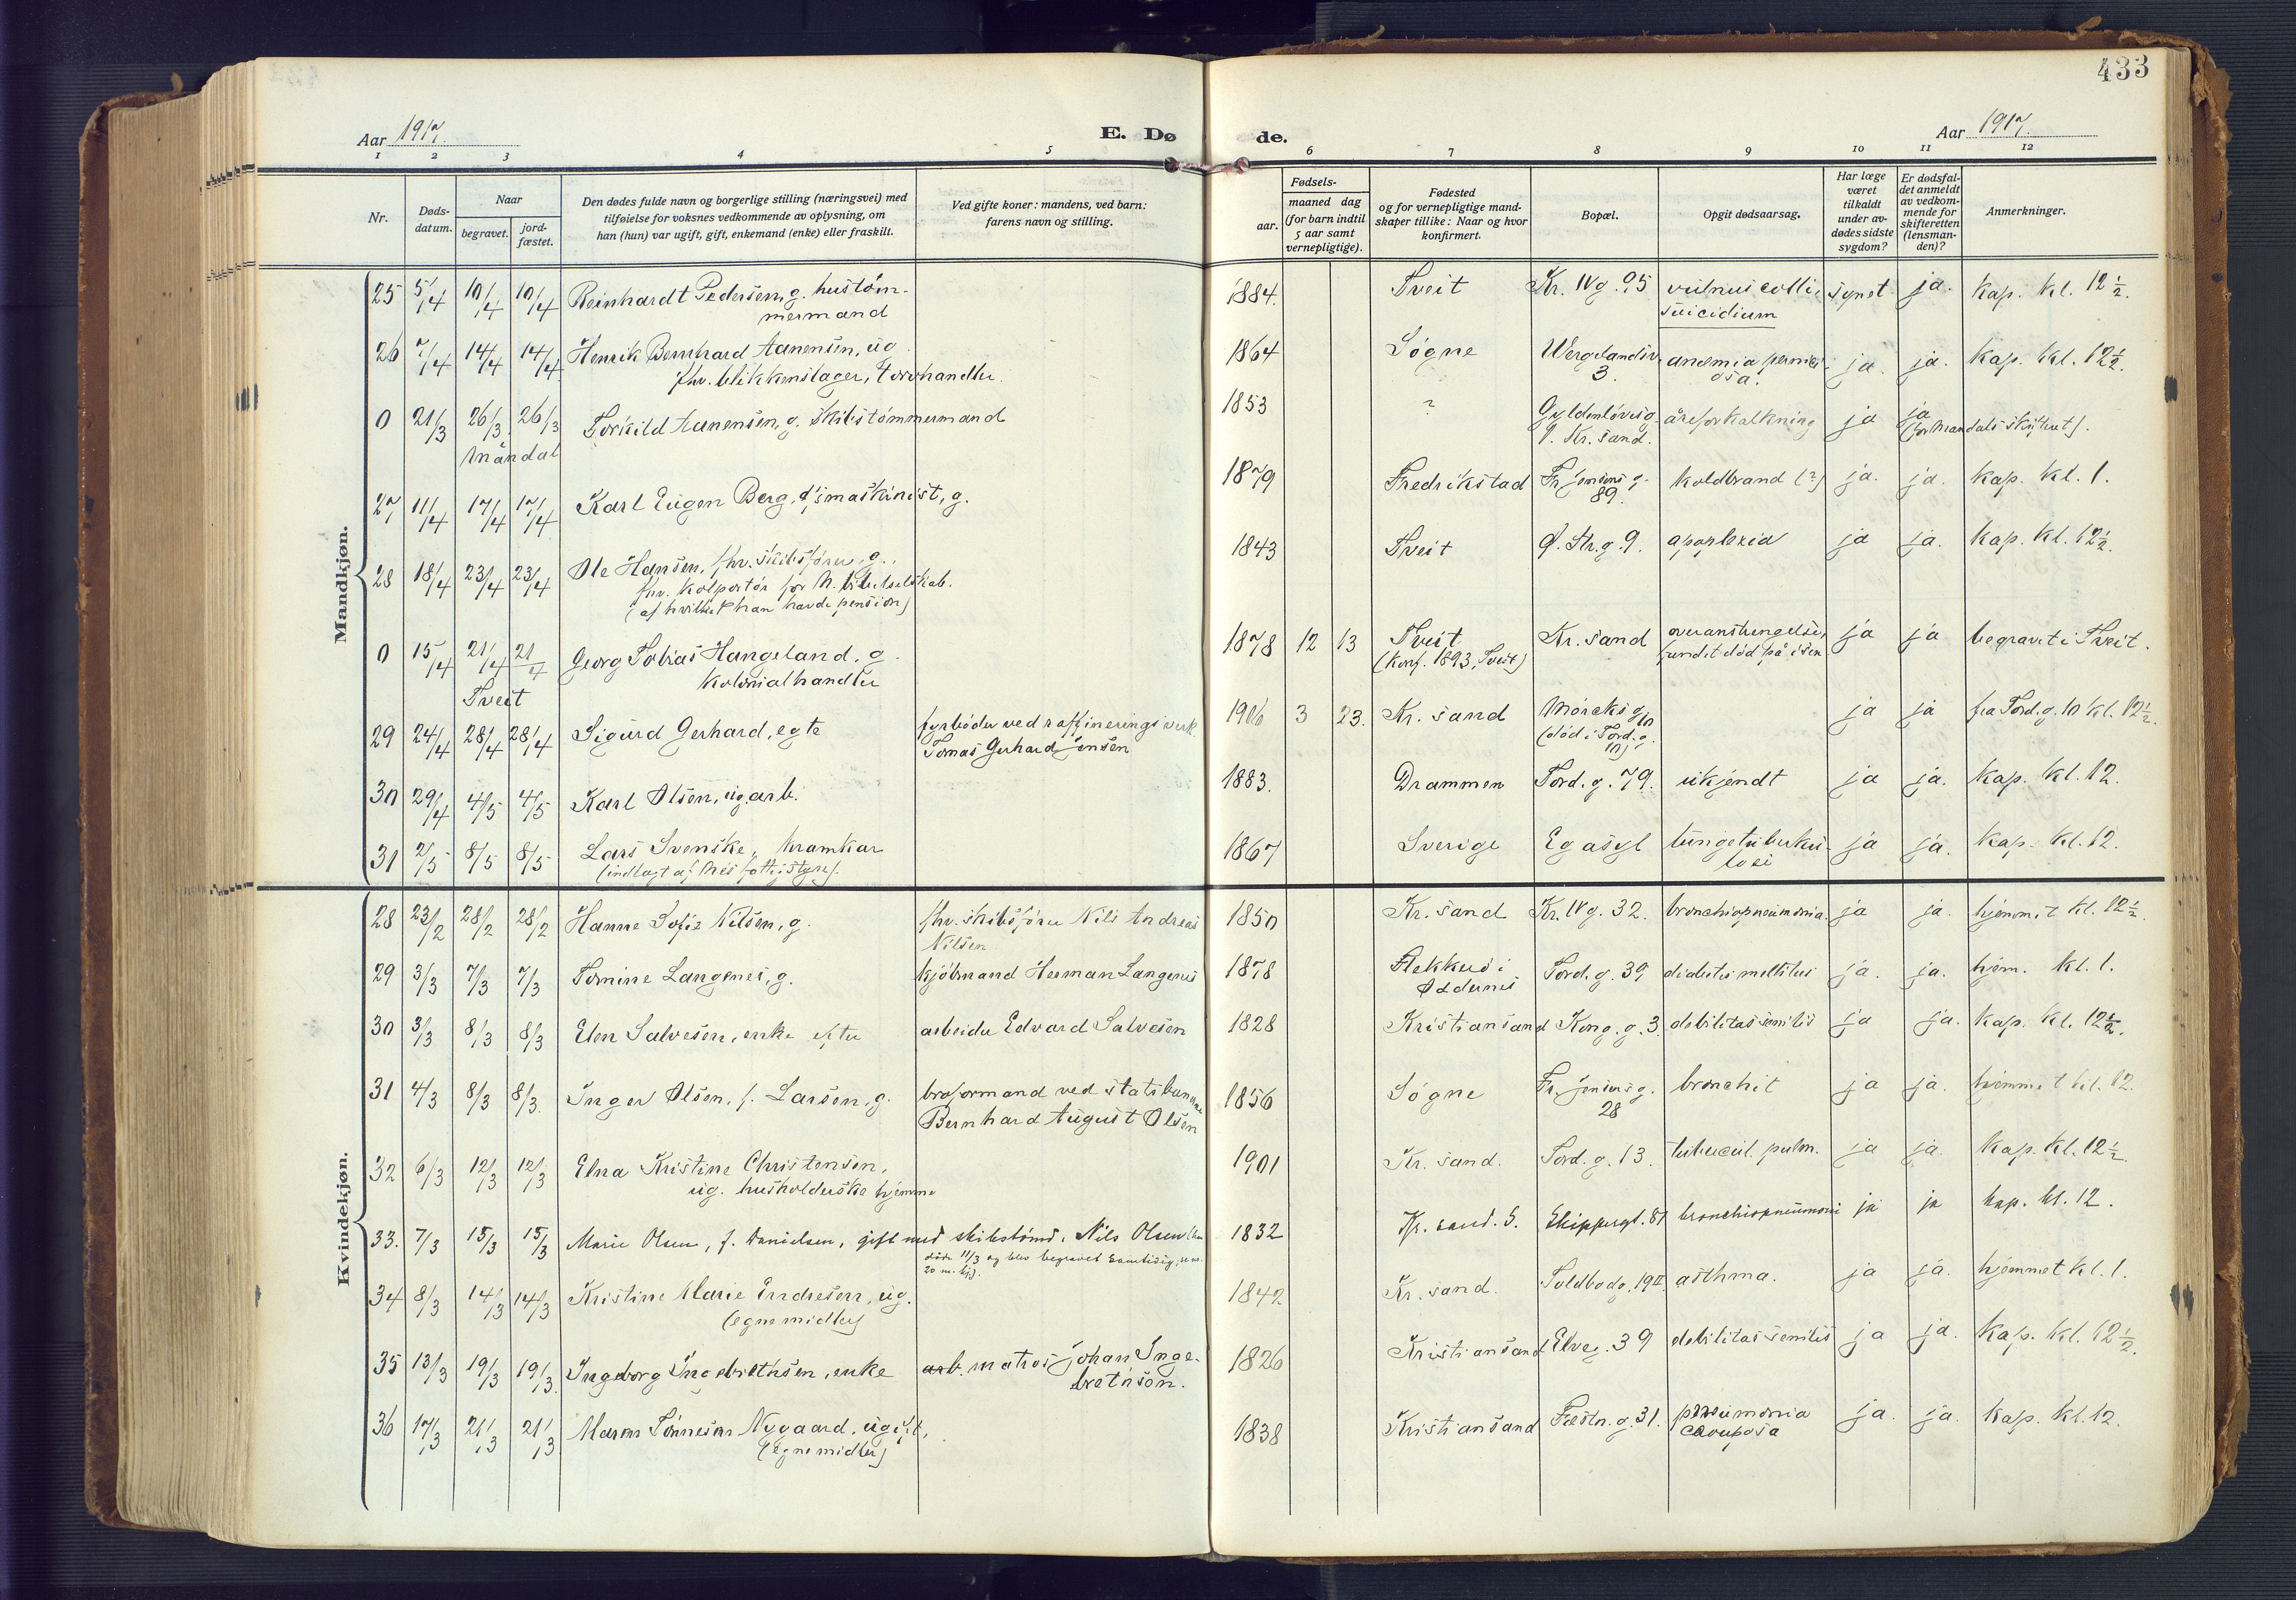 433
Aar 1917. E. Døde. Aar 1917.
1 2 3 4 5 6 7 8 9 10 11 12
Nr.
Døds-
datum.
Naar
begravet.
jord-
fæstet.
Den dødes fulde navn og borgerlige stilling (næringsvei) med
tilføielse for voksnes vedkommende av oplysning, om
han (hun) var ugift, gift, enkemand (enke) eller fraskilt.
Ved gifte koner: mandens, ved barn:
farens navn og stilling.
Fødsels-
aar.
maaned dag
(for barn indtil
5 aar samt
vernepligtige).
Fødested
og for vernepligtige mand-
skaper tillike: Naar og hvor
konfirmert.
Bopæl.
Opgit dødsaarsag.
Har læge
været
tilkaldt
under av-
dødes sidste
sygdom?
Er dødsfal-
det anmeldt
av vedkom-
mende for
skifteretten
(lensman-
den)?
Anmerkninger.
Mandkjøn.
25 5/4 10/4 10/4 Reinhardt Pedersen, g. hustøm- 1884. Tveit Kr. IVg. 95 vulnus colli, synet ja. kap. kl. 12 ½.
mermand suicidium
26 7/4 14/4 14/4 Henrik Bernhard Aanensen, ug. 1864 Søgne Wergelandsv. anemia pernici- ja. ja. kap. kl. 12½.
fhv. blikkenslager, torvhandler. 3. osa.
0 21/3 26/3 26/3 Torkild Aanensen, g. skibstømmermand 1853 ? Gyldenløvesg. åreforkalkning ja ja
Mandal 9. Kr.sand. (for Mandals skifteret).
27 11/4 17/4 17/4 Karl Eugen Berg, d/smaskinist, g. 1879 Fredrikstad Fr. Jensens g. koldbrand (?) ja. ja. kap. kl. 1.
89.
28 18/4 23/4 23/4 Ole Hansen, fhv. skibsfører, g., 1843 Tveit Ø. Str.g. 9. apoplexia ja ja. kap. kl. 12½.
fhv. kolportør for N. bibelselskab.
(af hvilket han havde pension)
0 15/4 21/4 21/4 Georg Tobias Hangeland, g. 1878 12 13 Tveit Kr. sand overanstrengelse, ja ja begravet i Tveit.
Tveit kolonialhandler (konf. 1893, Tveit) fundet død på isen
29 24/4 28/4 28/4 Sigurd Gerhard, egte fyrbøder ved raffineringsverk 1906 3 23. Kr. sand Mørcks g. 10 ja ja fra Tord.g. 10 kl. 12½.
Tomas Gerhard Jensen (død i Tord.g. 10)
30 29/4 4/5 4/5 Karl Olsen, ug. arb. 1883. Drammen Tord. g. 79. ukjendt ja ja. kap. kl. 12.
31 2/5 8/5 8/5 Lars Svenske, kramkar 1867 Sverige Eg asyl lungetuberku- ja ja. kap. kl. 12.
(indlagt af Nes fattigstyre). losi
Kvindekjøn.
28 23/2 28/2 28/2 Hanne Sofie Nilsen, g. fhv. skibsfører Nils Andreas 1850 Kr. sand Kr. IVg. 32. bronchiopneumonia. ja ja. hjemmet kl. 12½.
Nilsen
29 3/3 7/3 7/3 Tomine Langenes, g. kjøbmand Herman Langenes 1878 Flekkerø i Tord. g. 39 diabetes mellitus ja. ja. hjem. kl. 1.
Oddernes
30 3/3 8/3 8/3 Elen Salvesen, enke efter arbeider Edvard Salvesen 1828 Kristiansand Kong. g. 3. debilitas senilis ja ja. kap. kl. 12½.
31 4/3 8/3 8/3. Inger Olsen, f. Larsen, g. broformand ved statsbanerne 1856 Søgne Fr. Jensens g. bronchit ja ja. hjemmet kl. 12.
Bernhard August Olsen 28
32 6/3 12/3 12/3 Elna Kristine Christensen, 1901 Kr. sand. Tord. g. 13. tubercul. pulm. ja ja. kap. kl. 12½.
ug. husholderske hjemme
33. 7/3 15/3 15/3 Marie Olsen, f. Danielsen, gift med skibstømd. Nils Olsen (han 1832 Kr. sand. S. Skippergt. 81 bronchiopneumoni ja ja kap. kl. 12.
døde 11/3 og blev begravet samtidig, se nr.
20 m.kj).
34 8/3 14/3 14/3 Kristine Marie Endresen, ug. 1842 Kr. sand. Toldbodg. 19II. asthma. ja ja. hjemmet kl. 1.
(egne midler)
35 13/3 19/3 19/3. Ingeborg Ingebrethsen, enke arb. matros Johan Inge- 1826 Kristiansand Elveg. 39 debilitas senilis ja ja. kap. kl. 12½.
brethsen.
36 17/3 21/3 21/3 Maren Tønnesen Nygaard, ugift, 1838 Kristiansand Festn. g. 31. pneumonia ja. ja. kap. kl. 12.
(egne midler) crouposa